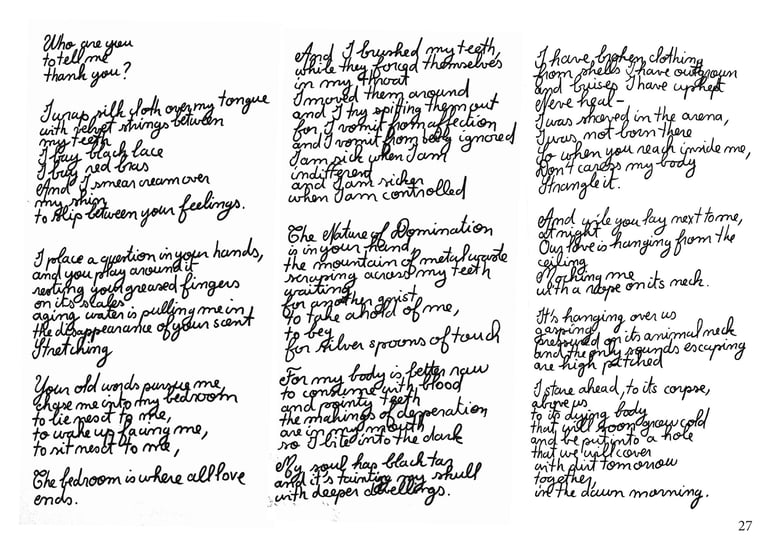 Who are you
to tell me
thank you?
I wrap silk cloth over my tongue
with velvet strings between
my teeth
I buy black lace
I buy red bras
And I smear cream over
my skin
to slip between your feelings.
I place a question in your hands,
and you play around it
resting your greased fingers
on its scales
aging water is pulling me in
the disappearance of your scent
Stretching
Your old words pursue me,
chase me into my bedroom
to lie next to me,
to wake up facing me,
to sit next to me,
The bedroom is where all love
ends.
And I brushed my teeth,
while they forced themselves
in my throat
I moved them around
and I try spitting them out
for I vomit from affection
and I vomit from being ignored
I am sick when I am
indifferent
and I am sicker
when I am controlled
The Nature of Domination
is in your hand,
the mountain of metal waste
scraping across my teeth
waiting
for another
to take ahold of me,
to beg
for silver spoons of touch
For my body is better raw
to consume with blood
and pointy teeth
the makings of desperation
are in my mouth
so I bite into the dark
My soul has black tar
and it's tainting my skull
with deeper dwellings.
I have broken clothing
from shells I have outgrown
and bruises I have
Never heal-
I was in the arena,
I was not born there
So when you reach inside me,
Don't caress my body
Strangle it.
And while you lay next to me,
at night
Our love is hanging from the
ceiling
Mocking me
with a rope on its neck.
It's hanging over us
gasping
pressured on its animal neck
and the only sounds escaping
are high pitched
I stare ahead, to its corpse,
above us
to its dying body
that will soon grow cold
and be put into a hole
that we will cover
with dirt tomorrow
together,
in the dawn morning.
27